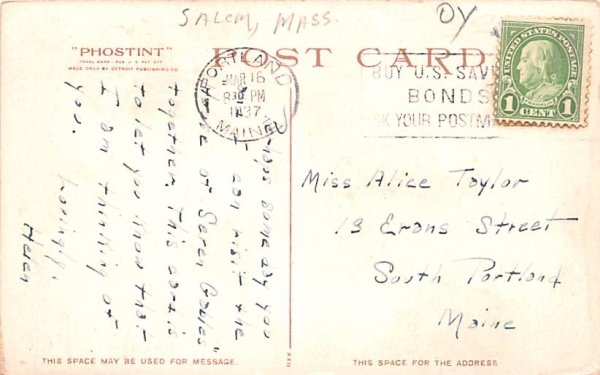 SALEM, MASS.
OY
"PHOSTINT"
TRADE MARK REG. U.S. PAT. OFF.
MADE ONLY BY DETROIT PUBLISHING CO.
POST CARD
PORTLAND
MAR 16
8 30 PM
1937
MAINE
BUY U.S. SAV
BONDS
SK YOUR POSTM
UNITED STATES POSTAGE
1 CENT 1
some day you
+ I can visit the
"House of Seven Gables"
together. This card is
to let you know that
I am thinking of
you.
Lovingly,
Helen
Miss Alice Taylor
13 Evans Street
South Portland
Maine
THIS SPACE MAY BE USED FOR MESSAGE.
THIS SPACE FOR THE ADDRESS